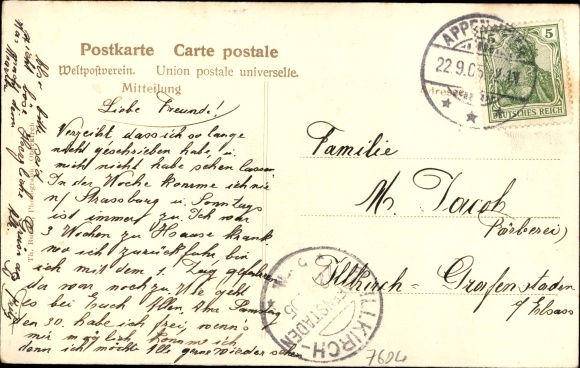 Postkarte Carte postale
Weltpostverein. Union postale universelle.
Mitteilung
Liebe Freunde!
Verzeiht dass ich so lange
nicht geschrieben habe, u.
mich nicht habe sehen lassen.
In der Woche komme ich nie
n/ Strassburg u. Sonntags
ist immer zu. Ich war
3 Wochen zu Hause krank
wo ich zurückfuhr, bin
ich mit dem 1. Zug gefahren
da war noch zu. Wie geht
es bei Euch Allen. Am Samstag
den 30. habe ich frei, wenn's
mir möglich komme ich
denn ich möchte Alle gerne wieder sehen
APPEN
22.9.05
5
DEUTSCHES REICH
Familie
M. Jacob
(Färberei)
Illkirch-Grafenstaden
i/ Elsass
ILLKIRCH-
GRAFENSTADEN
05
7604